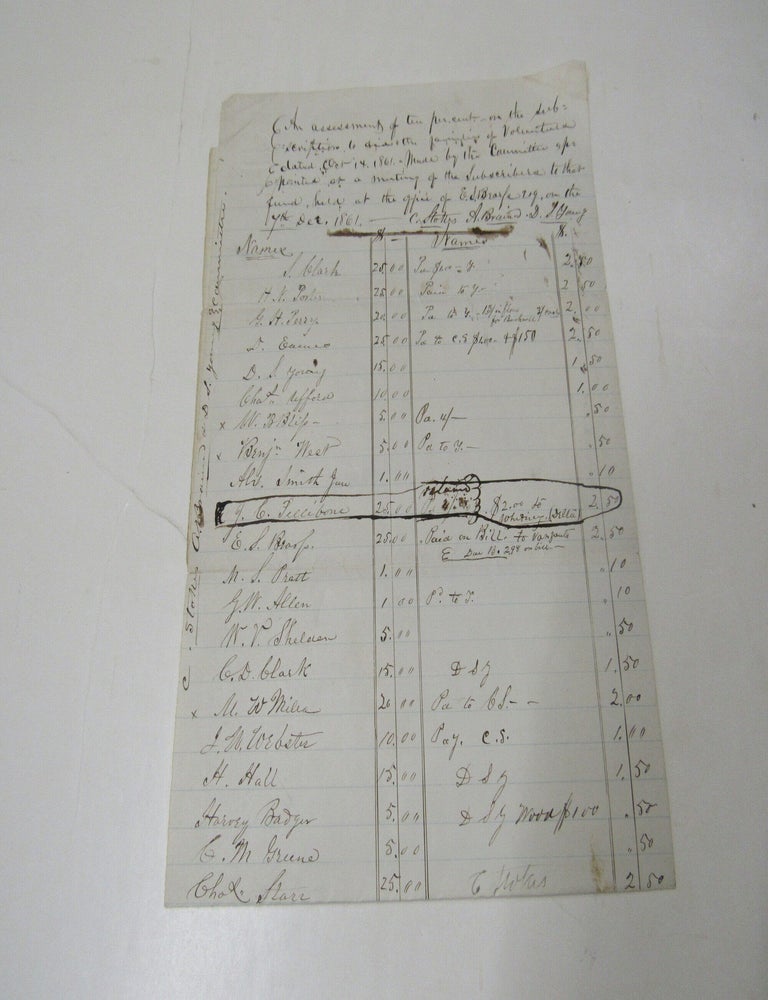 An assessment of ten percent on the Sub=
scription to aid the families of Volunteers
dated Oct 14. 1861. Made by the Committee ap=
pointed at a meeting of the Subscribers to that
fund, held at the office of E. S. Esq. on the
7th Dec. 1861. C. Stokes A. Brainard D. S. Young
Names $ Names $
S. Clark 25.00 Pa 2.50
H. N. Porter 25.00 Paid to Y- 2 50
G. H. Perry 20.00 Pa to Y. 2.00
D. Eames 25.00 Pa to C.S. & $150 2.50
D. S. Young 15.00 1.50
Chas. Ufford 10.00 1.00
x W. B. Bliss 5.00 Pa. 4/- .50
x Benjn West 5.00 Pd to Y.- .50
Alv. Smith Jun 1.00 "10
J. C. 25.00 $2.00 to Whitney 2.50
E. S. 25.00 Paid on Bill to 2.50
M. S. Pratt 1.00 "10
G. W. Allen 1 00 Pd. to Y. "10
W. V. Shelden 5.00 "50
C. D. Clark 15.00 D S Y 1.50
x M. W. Miles 20 00 Pa to C.S.- - 2.00
J. W. Webster 10.00 Pay. C.S. 1.00
H. Hall 15.00 D S Y 1.50
Harvey Badger 5.00 D S Y Wood $1.00 .50
C. M. Greene 5.00 "50
Chas. Starr 25.00 C Stokes 2 50
C. Stokes A. Brainard & D. S. Young Committee.